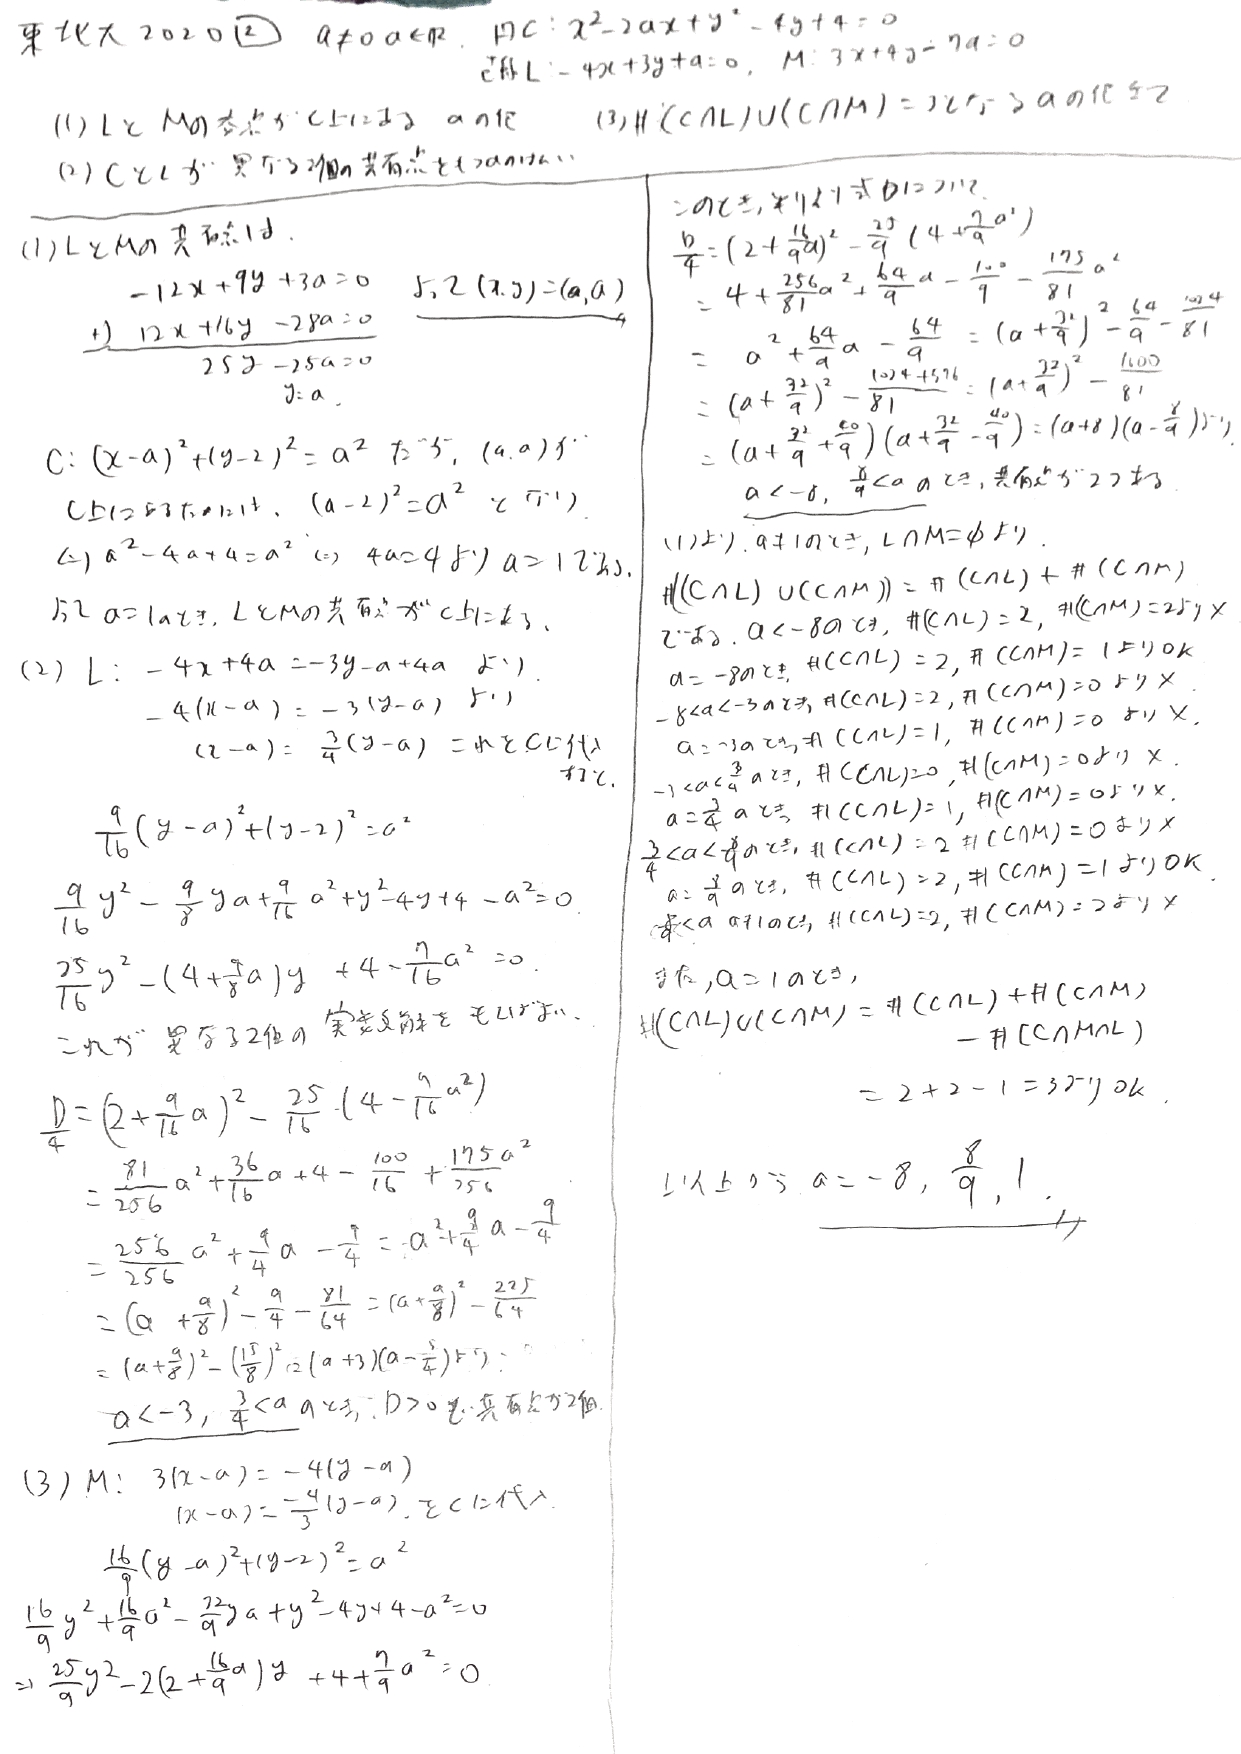 東北大 2020 ② a≠0 a∈ℝ. 円C: x²-2ax+y²-4y+4=0
直線L: -4x+3y+a=0, M: 3x+4y-7a=0
(1) LとMの交点がC上にある aの値 (3) #(C∩L)∪(C∩M)=3となるaの値全て
(2) CとLが異なる2個の共有点をもつaのはんい
(1) LとMの共有点は.
-12x+9y+3a=0
+) 12x+16y-28a=0
25y-25a=0
y=a.
よって(x,y)=(a,a)
C: (x-a)²+(y-2)²=a² だから, (a,a)が
C上にあるためには, (a-2)²=a² となり
⇔ a²-4a+4=a² ⇔ 4a=4より a=1である.
よって a=1のとき, LとMの共有点がC上にある.
(2) L: -4x+4a=-3y-a+4a より
-4(x-a)=-3(y-a) より
(x-a)=3/4(y-a) これをCに代入
すると.
9/16(y-a)²+(y-2)²=a²
9/16y²-9/8ya+9/16a²+y²-4y+4-a²=0
25/16y²-(4+9/8a)y+4-7/16a²=0.
これが異なる2個の実数解をもてばよい.
D/4=(2+9/16a)²-25/16(4-7/16a²)
=81/256a²+36/16a+4-100/16+175a²/256
=256/256a²+9/4a-9/4=a²+9/4a-9/4
=(a+9/8)²-9/4-81/64=(a+9/8)²-225/64
=(a+9/8)²-(15/8)²=(a+3)(a-3/4)より
a<-3, 3/4<a のとき, D>0で共有点が2個.
(3) M: 3(x-a)=-4(y-a)
(x-a)=-4/3(y-a). をCに代入
16/9(y-a)²+(y-2)²=a²
16/9y²+16/9a²-32/9ya+y²-4y+4-a²=0
⇒ 25/9y²-2(2+16/9a)y+4+7/9a²=0
このとき, 判別式Dについて
D/4=(2+16/9a)²-25/9(4+7/9a²)
=4+256/81a²+64/9a-100/9-175/81a²
=a²+64/9a-64/9=(a+32/9)²-64/9-1024/81
=(a+32/9)²-1024+576/81=(a+32/9)²-1600/81
=(a+32/9+40/9)(a+32/9-40/9)=(a+8)(a-8/9)より
a<-8, 8/9<a のとき, 共有点が2つある
(1)より, a≠1のとき, L∩M=φより.
#((C∩L)∪(C∩M))=#(C∩L)+#(C∩M)
である. a<-8のとき, #(C∩L)=2, #(C∩M)=2より×
a=-8のとき, #(C∩L)=2, #(C∩M)=1よりOK
-8<a<-3のとき, #(C∩L)=2, #(C∩M)=0より×
a=-3のとき, #(C∩L)=1, #(C∩M)=0より×.
-3<a<3/4のとき, #(C∩L)=0, #(C∩M)=0より×.
a=3/4のとき #(C∩L)=1, #(C∩M)=0より×.
3/4<a<8/9のとき, #(C∩L)=2 #(C∩M)=0より×
a=8/9のとき, #(C∩L)=2, #(C∩M)=1よりOK.
8/9<a a≠1のとき, #(C∩L)=2, #(C∩M)=2より×
また, a=1のとき,
#(C∩L)∪(C∩M)=#(C∩L)+#(C∩M)
-#(C∩M∩L)
=2+2-1=3よりOK.
以上から a=-8, 8/9, 1.